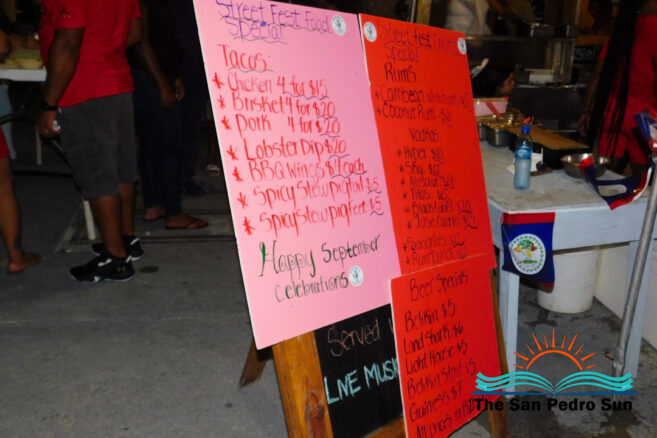 Street Fest Food
Special
Tacos:
* Chicken 4 for $15
* Brisket 4 for $20
* Pork 4 for $20
* Lobster Dip $20
* BBQ Wings $1 Each
* Spicy Stew pigtail $15
* Spicy Stew pigfeet $15
Happy September
celebrations
Street Fest
Special
Rums
* Carribean
* Coconut Rum
Vodkas
* Hyper $10
* Sky
* Absolut
* Titos
* Black label
* Jose Cuervo
* Sangria
* Rum Punch
Beer Specials
Belikin $5
Land Shark $6
Light House $5
Belikin Stout $5
Guiness $7
All Prices in
Served
LIVE MUSIC
The San Pedro Sun